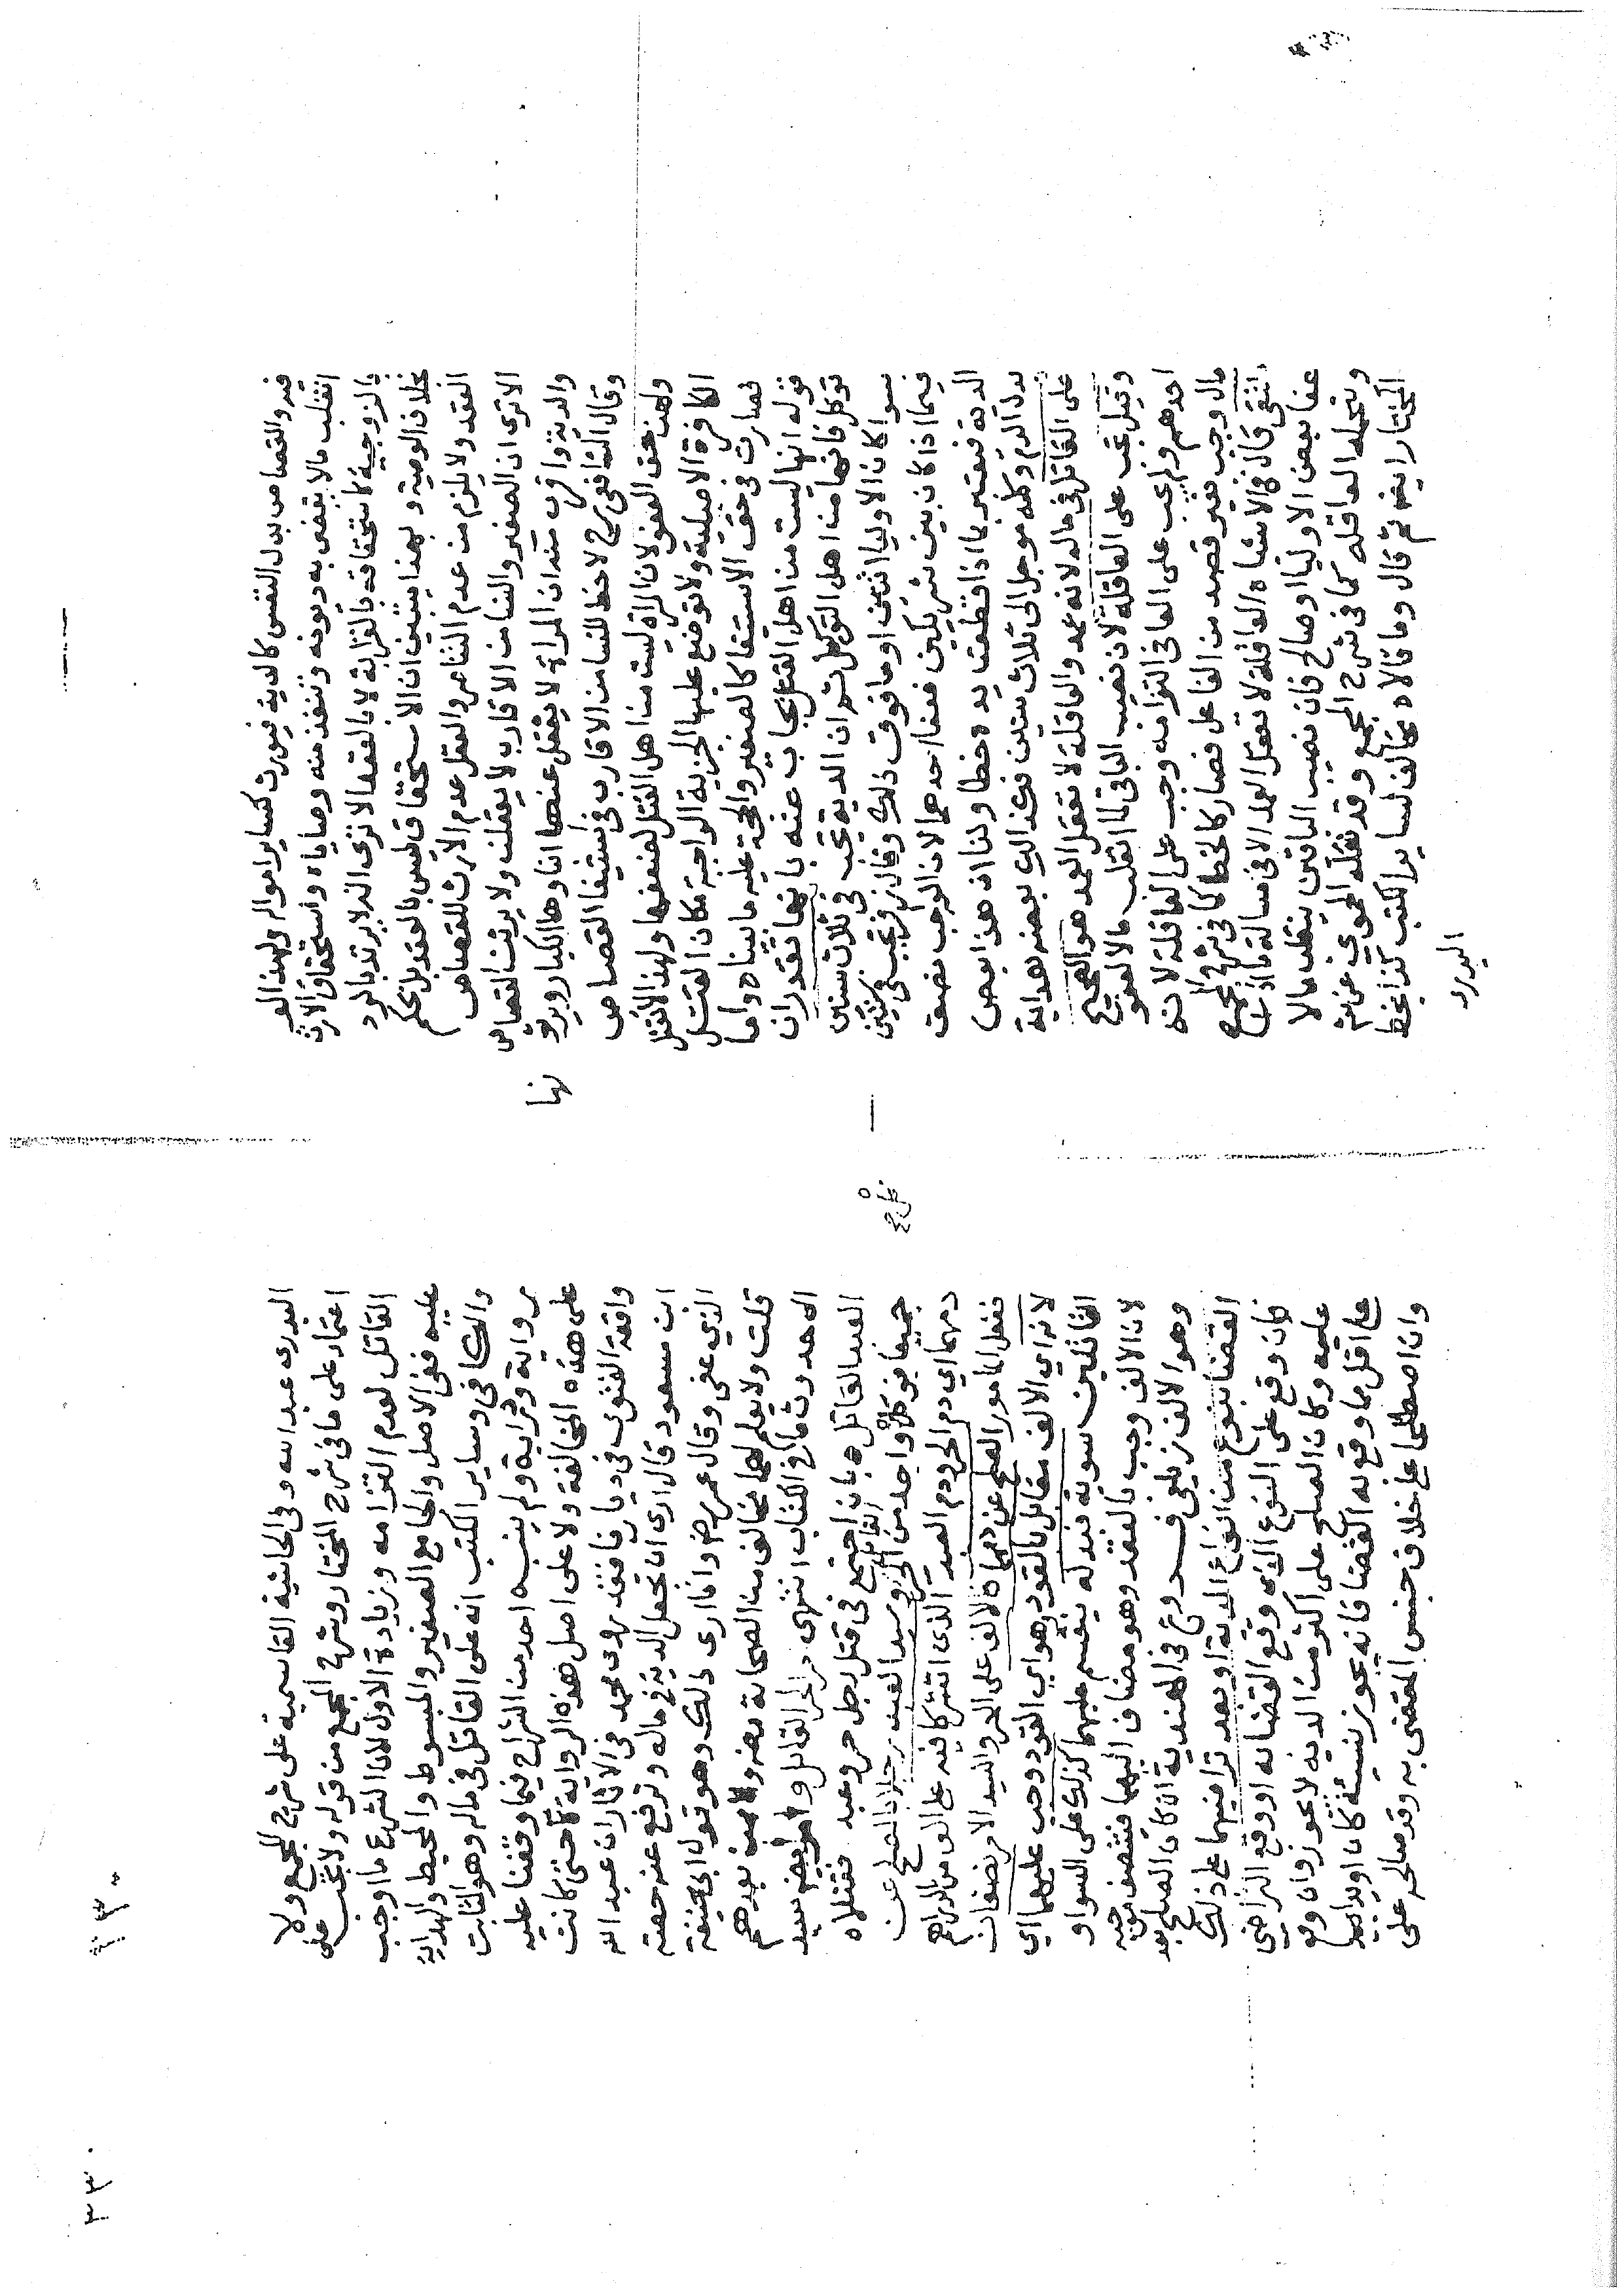 فيه والقصاص بدل النفس كالدية فيورث كساير امواله ولهذا لو
انقلب مالا يقضى به ديونه وتنفذ منه وصاياه واستحقاق الارث
بالزوجية كاستحقاقه بالقرابة لا بالعقد الا ترى انه لا يرتد بالرد
بخلاف الوصية وبهذا يتبين ان الاستحقاق ليس بالعقد بل بحكم
العقد ولا يلزم من عدم التناصر والعقل عدم الارث للقصاص
الا ترى ان الصغير والنسا من الاقارب لا يعقلن ولا يرث القصاص
والدية واقرب منه ان المراة لا يعقل عنها ابناوها الكبار ويرثونها
وقال الشافعي رح لا حظ للنسا من الاقارب في استيفا القصاص
ولهن حق العفو لان المراة ليست من اهل القتل لضعفها ولهذا لا تقتل
الكافرة الاصلية ولا توضع عليها الجزية الواجبة مكان القتل
فصارت في حق الاستيفا كالصغير والحجة عليه ما بيناه واما
قوله انها ليست من اهل القتل يجاب عنه بانها تقدر ان
توكل فانها من اهل التوكيل ثم ان الدية تجب في ثلاث سنين
سوا كان الاوليا اثنين او ما فوق ذلك وقال زفر تجب في سنتين
فيما اذا كان بين شريكين فعفا احدهما لان الواجب نصف
الدية فيعتبر بما اذا قطعت يده خطا ولنا ان هذا بعض
بدل الدم وكله موجل الى ثلاث سنين فكذلك بعضه هداية
على القاتل في ماله لانه عمد والعاقلة لا تعقل العمد هو الصحيح
وقيل تجب على العاقلة لان نصيب الباقي لما انقلب مالا بعفو
احدهم ولم يجب على العافي التزامه وجب على العاقلة لانه
مال وجب بغير قصد من الفاعل فصار كالخطا كما في شرح المجمع
انتهى قال في الاشباه العاقلة لا تعقل العمد الا في مسالة ما اذا
عفا بعض الاوليا او صالح فان نصيب الباقين ينقلب مالا
وتتحمله العاقلة كما في شرح المجمع وقد نقله الحموي عن شرح
المختار ايضا ثم قال وما قالاه مخالف لساير الكتب كذا بخط
البدري
البدري عبد الله وفي الحاشية القاسمية على شرح المجمع ولا
اعتماد على ما في شرح المختار وشرح المجمع من قوله ولا تجب على
القاتل لعدم التزامه وزيادة الاول لان الشرع ما اوجب
عليه ففي الاصل والجامع الصغير والمبسوط والمحيط والهداية
والكافي وساير الكتب انه على القاتل في ماله وهو الثابت
رواية ودراية ولم ينسبه احد من الشراح فيما وقفنا عليه
على هذه المخالفة ولا على اصل هذه الرواية حتى كانت
واقعة الفتوى في ديارنا فقد روى محمد في الاثار ان عبد الله
ابن مسعود قال ارى ان تجعل الدية في ماله وترفع عنه حصة
الذي عفى وقال عمر رض وانا ارى ذلك وهو قول ابي حنيفة
قلت ولا يعلم لهما مخالف من الصحابة رض ولا من بعدهم
الاحدوث ما في الكتاب انتهى امر الحر القاتل وسيد
العبد القاتل بان اجتمع في قتل رجل حر وعبد فقتلاه
جميعا فوكل واحد من الحر القاتل وسيد العبد رجلا بالصلح عن
دمهما اي دم الحر ودم العبد الذي اشتركا فيه على الف من الدراهم
ففعل المامور الصلح عن دمهما فالالف على الحر والسيد الامر نصفان
لانه اي الالف مقابل بالقود وهو اي القود وجب عليهما اي
القاتلين سوية فبدله ينقسم عليهما كذلك على السوا و
لان الالف وجب بالعقد وهو مضاف اليهما فتنصف موجبه
وهو الالف زيلعي فـروع في الهندية ان كان الصلح بعد
القضا بنوع من انواع الدية او بعد تراضيهما على ذلك
فان وقع على النوع الذي وقع القضا به او وقع التراضي
عليه وكان الصلح على اكثر من الدية لا يجوز وان وقع
على اقل مما وقع به القضا فانه يجوز نسيئة كان او يدا بيد
وان اصطلحا على خلاف جنس المقضى به وقد صالحه على